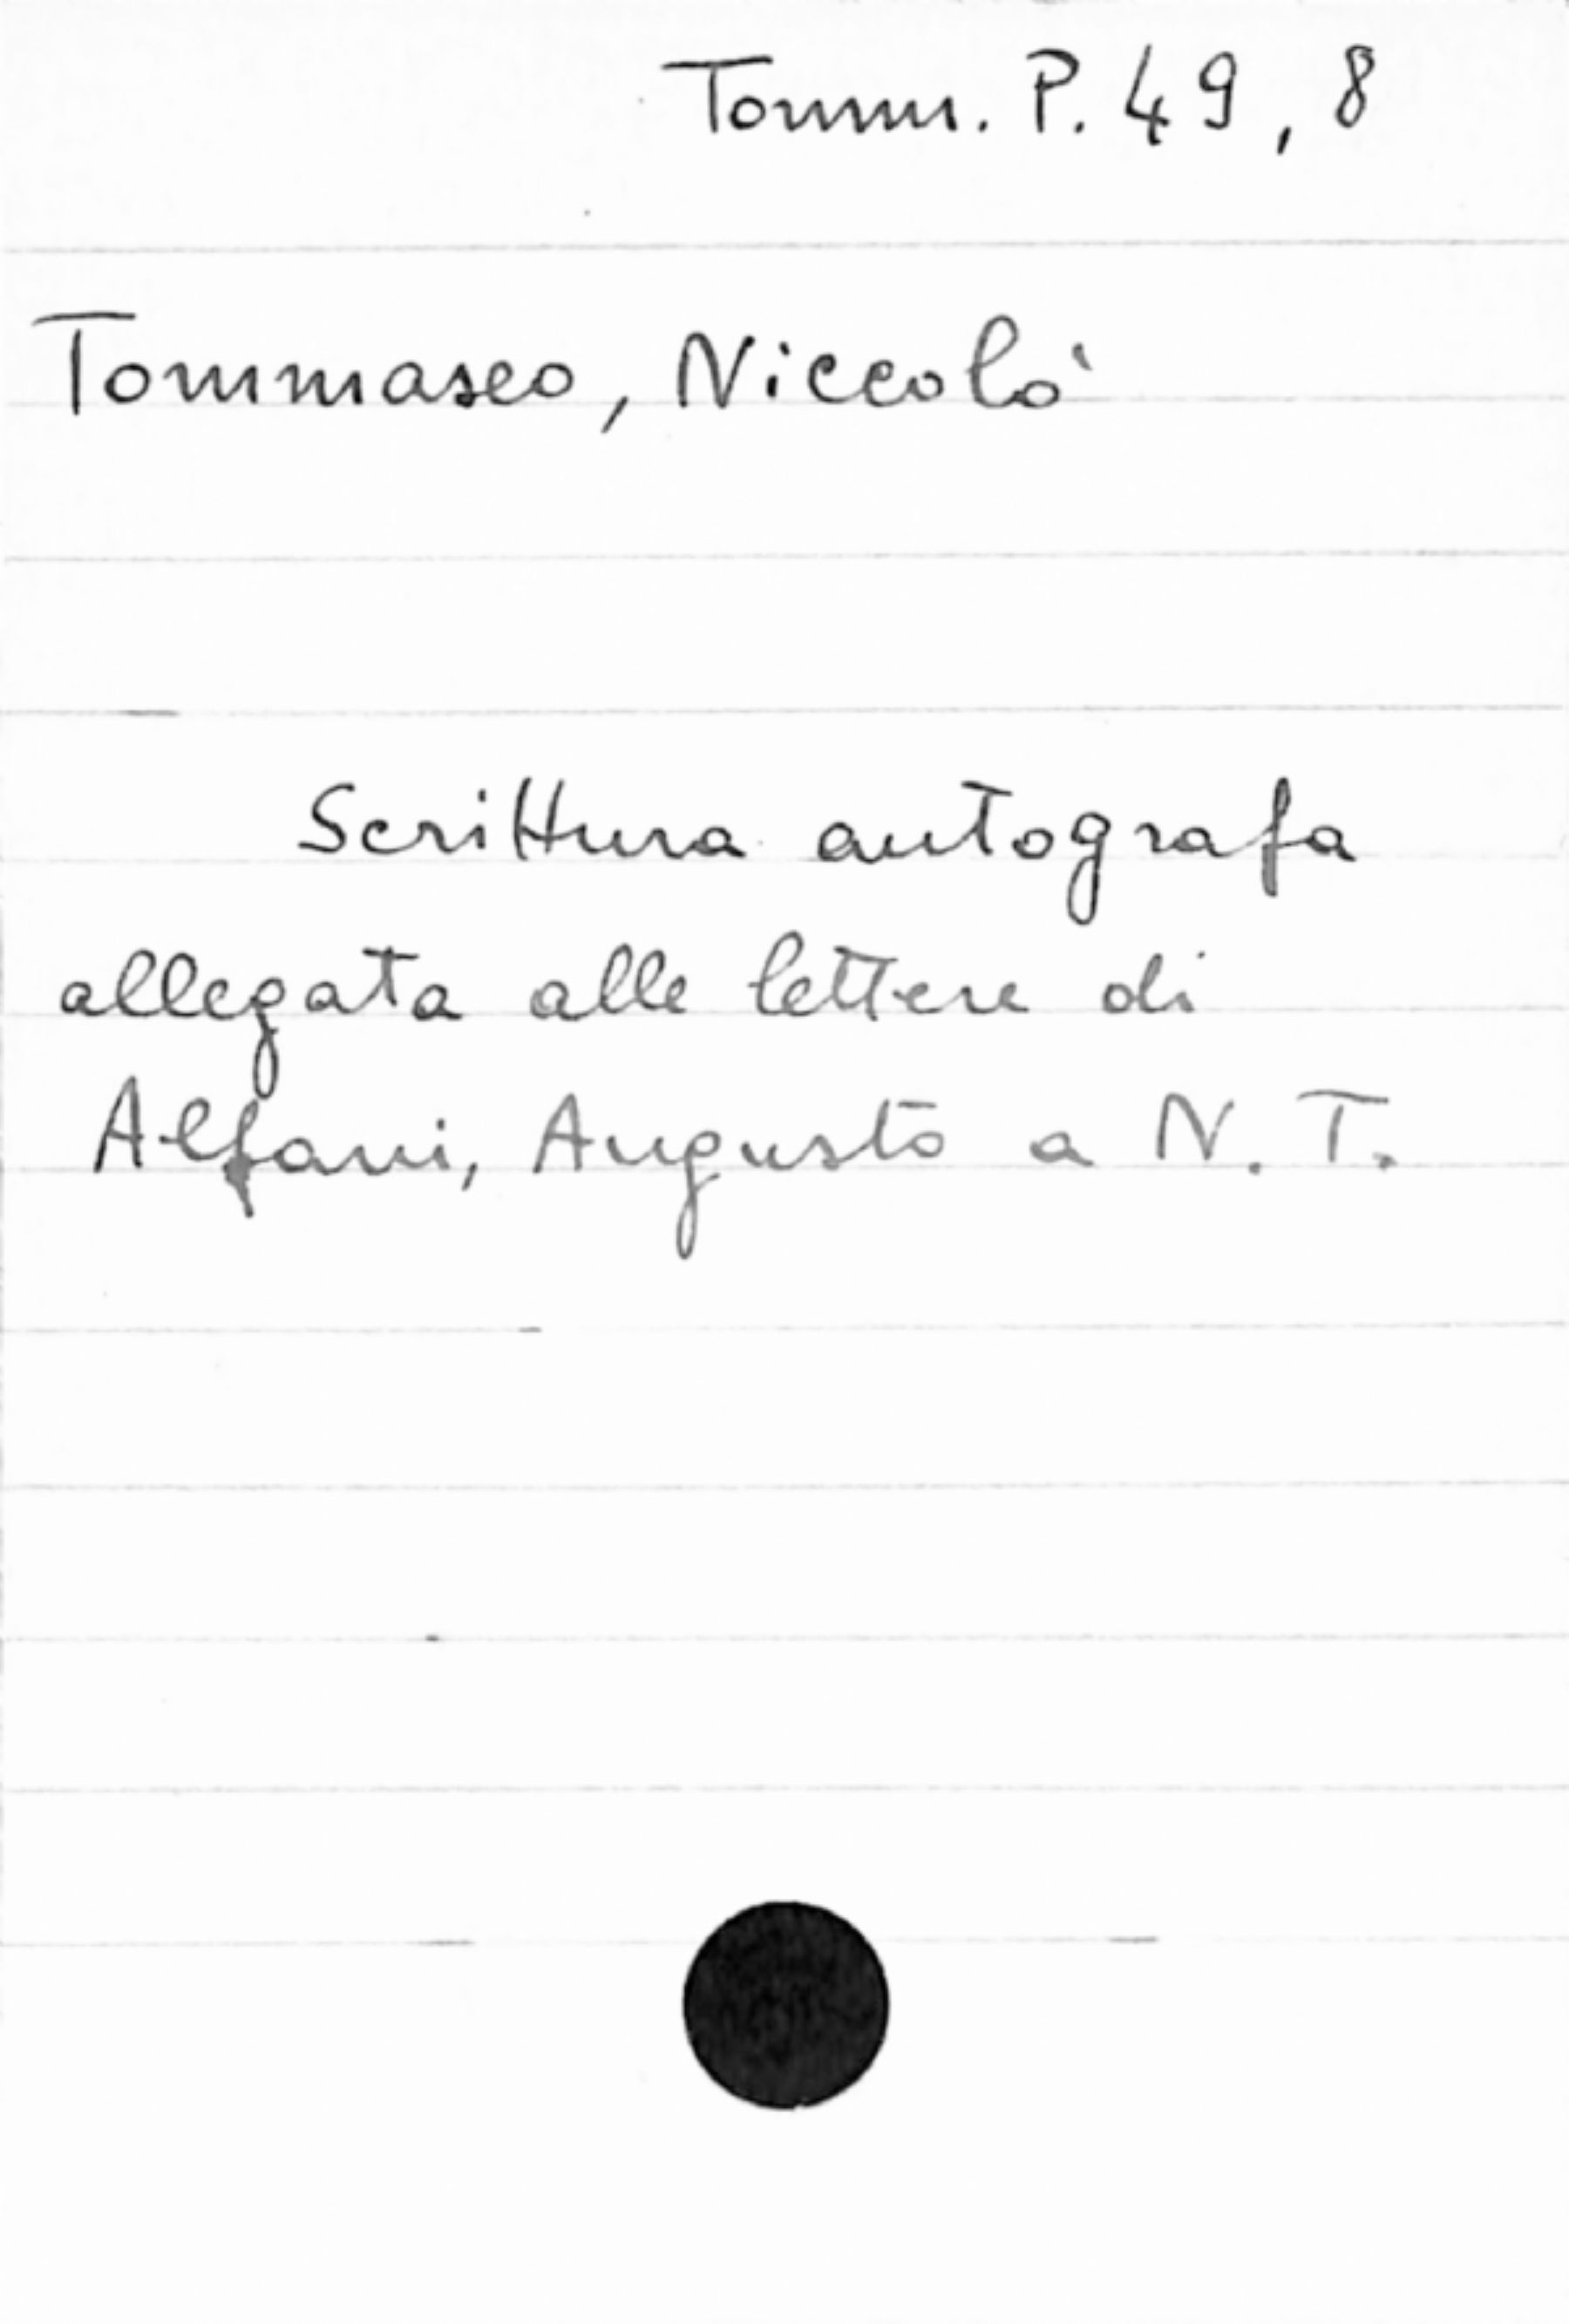 Tomm. P. 49, 8
Tommaseo, Niccolò
Scrittura autografa
allegata alle lettere di
Alfani, Augusto a N. T.